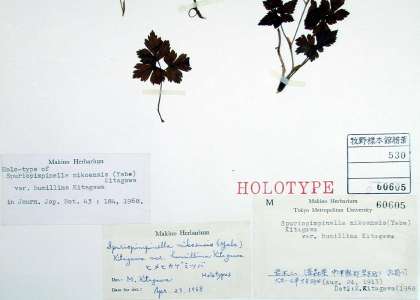 Makino Herbarium
Holo-type of
Spuriopimpinella nikoensis (Yabe)
Kitagawa
var. humillima Kitagawa
in Journ. Jap. Bot. 43 : 184, 1968.
牧野標本館標葉
530
60605
HOLOTYPE
M
Makino Herbarium
Tokyo Metropolitan University
60605
Spuriopimpinella nikoensis(Yabe)
Kitagawa
var. humillima Kitagawa
(Aug. 24, 1913)
Det: M.Kitagawa(1968
Makino Herbarium
Spuriopimpinella nikoensis (Yabe)
Kitagawa var. humillima Kitagawa
ヒメヒカゲミツバ
Holotypus
Det: M. Kitagawa
Date for det: Apr 23, 1968